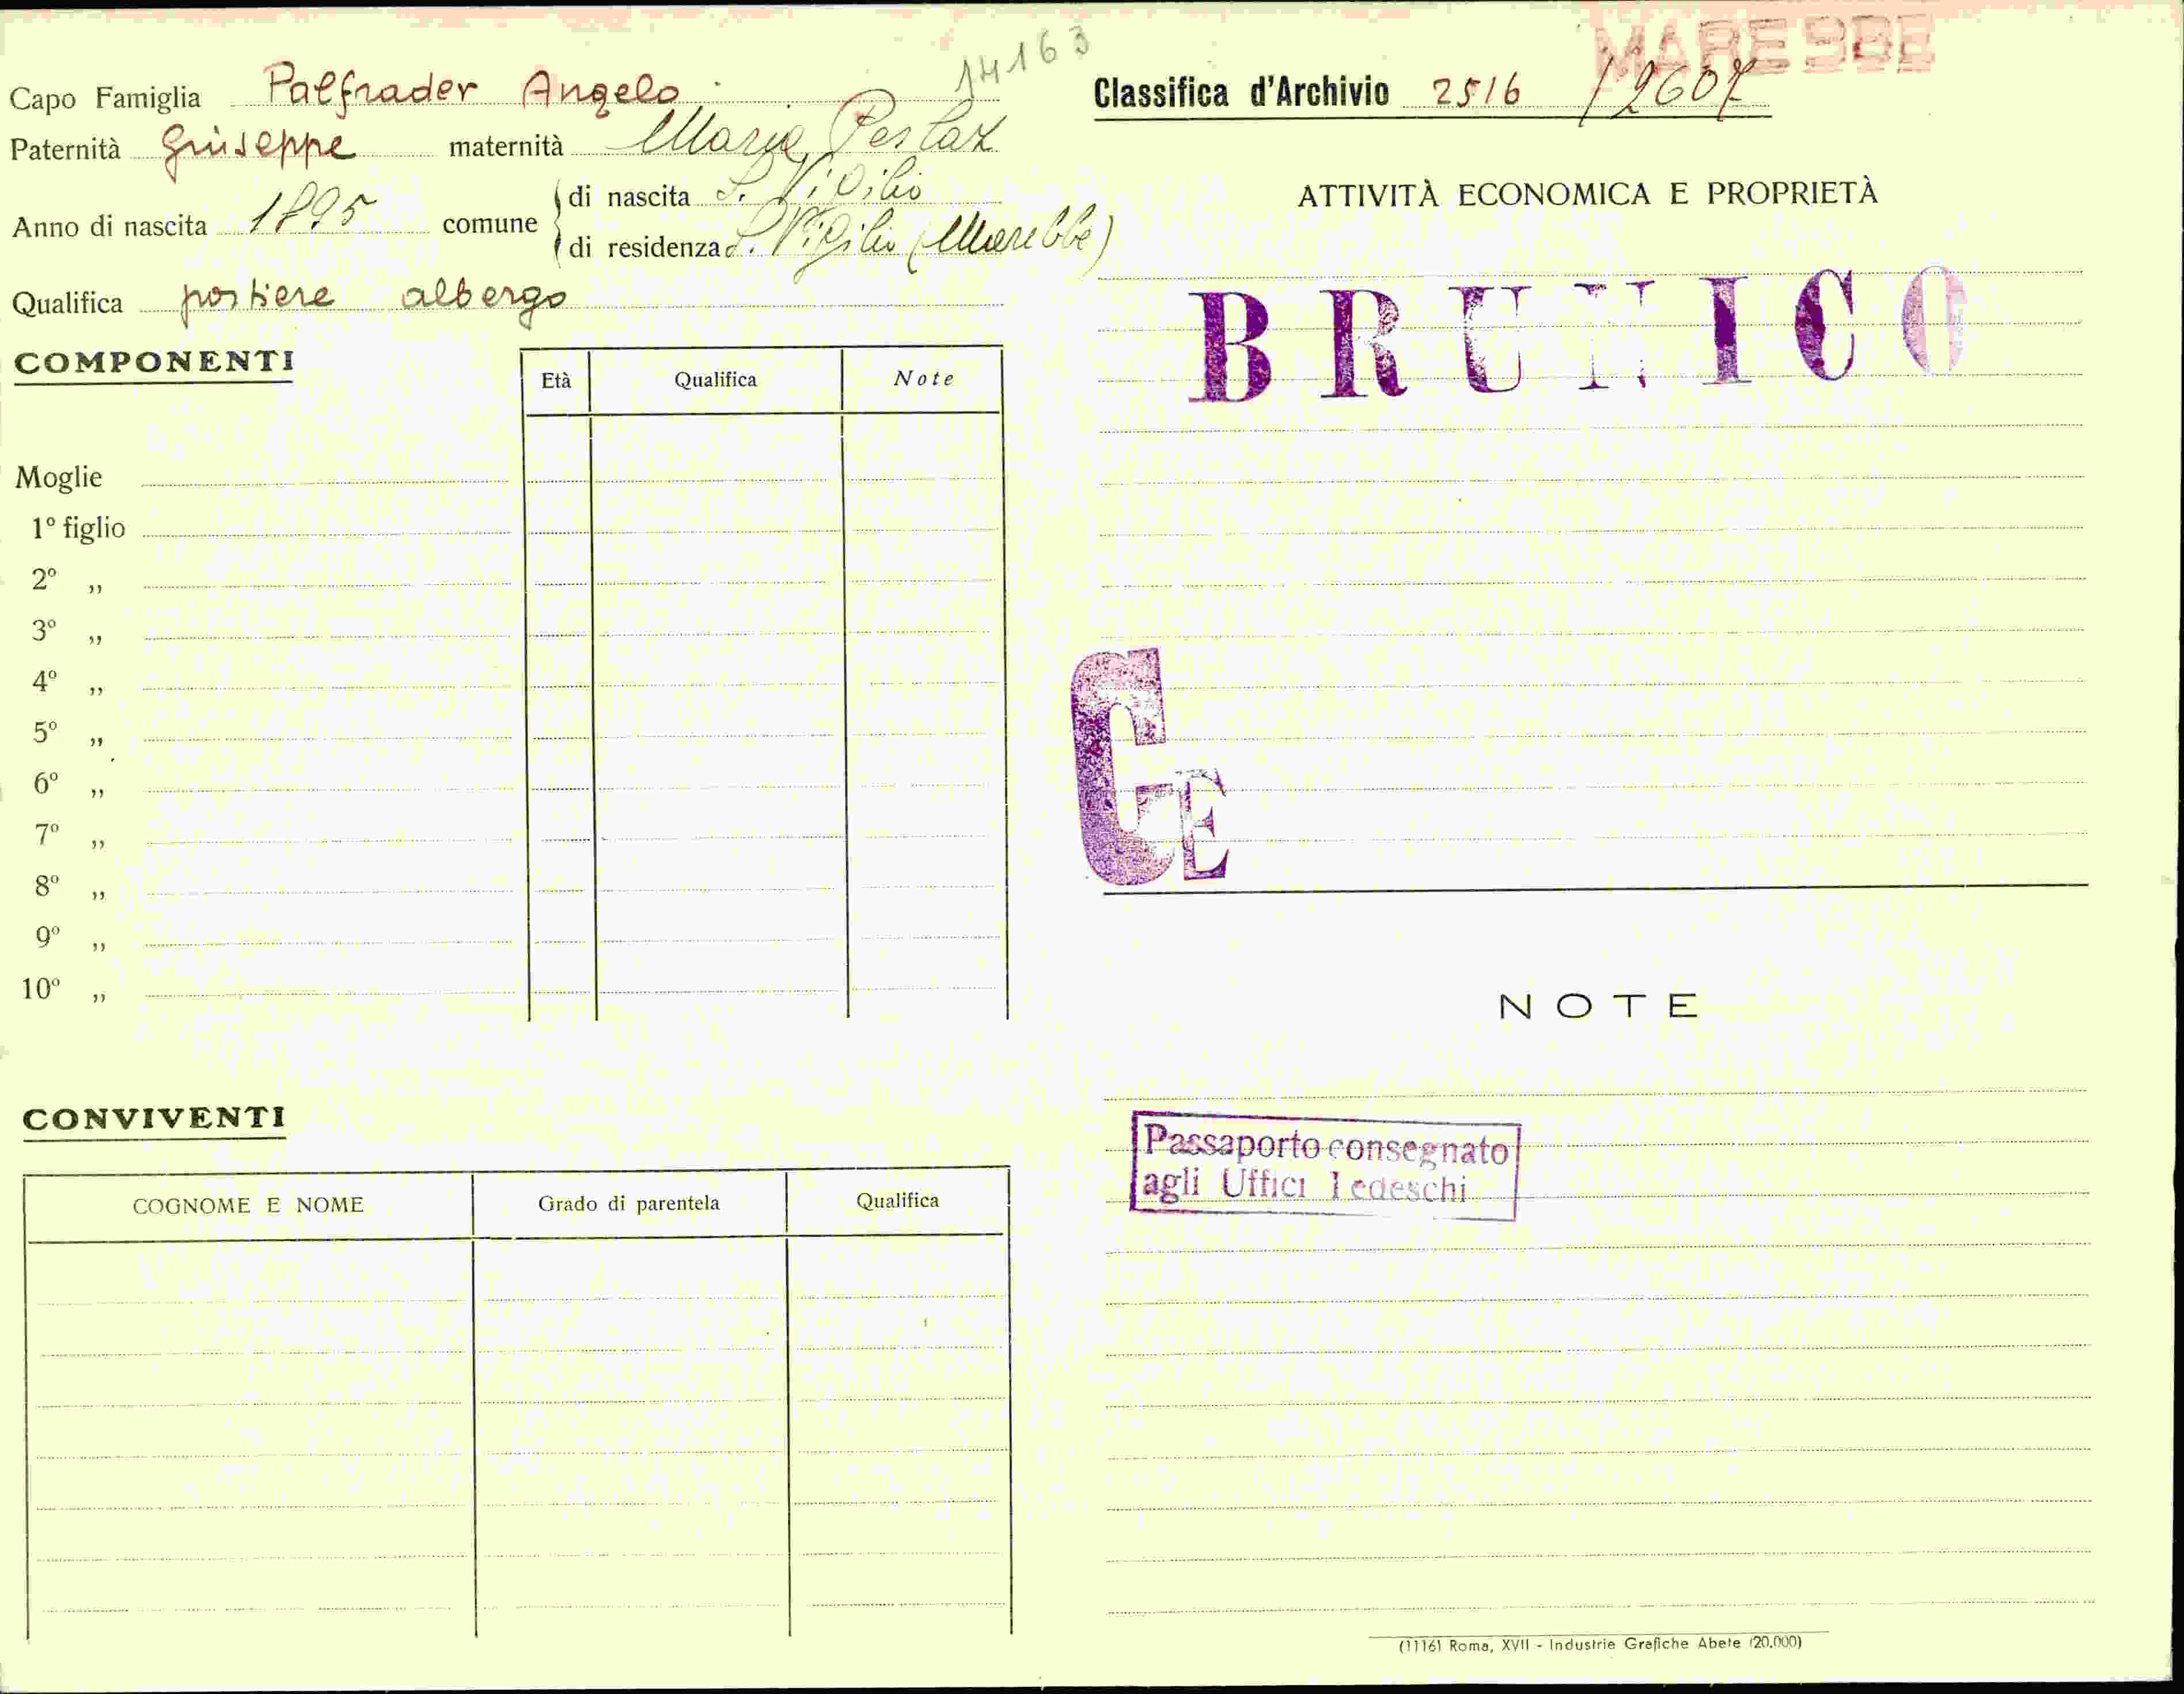 14163
MAREBBE
Capo Famiglia Palfrader Angelo
Classifica d'Archivio 2516 / 2607
Paternità Giuseppe maternità Maria
Anno di nascita 1895 comune di nascita S. Vigilio
di residenza S. Vigilio (Marebbe)
Qualifica portiere albergo
COMPONENTI
Età Qualifica Note
Moglie
1º figlio
2º „
3º „
4º „
5º „
6º „
7º „
8º „
9º „
10º „
CONVIVENTI
COGNOME E NOME Grado di parentela Qualifica
ATTIVITÀ ECONOMICA E PROPRIETÀ
BRUNICO
GE
NOTE
Passaporto consegnato
agli Uffici Tedeschi
(1116) Roma, XVII - Industrie Grafiche Abete (20.000)